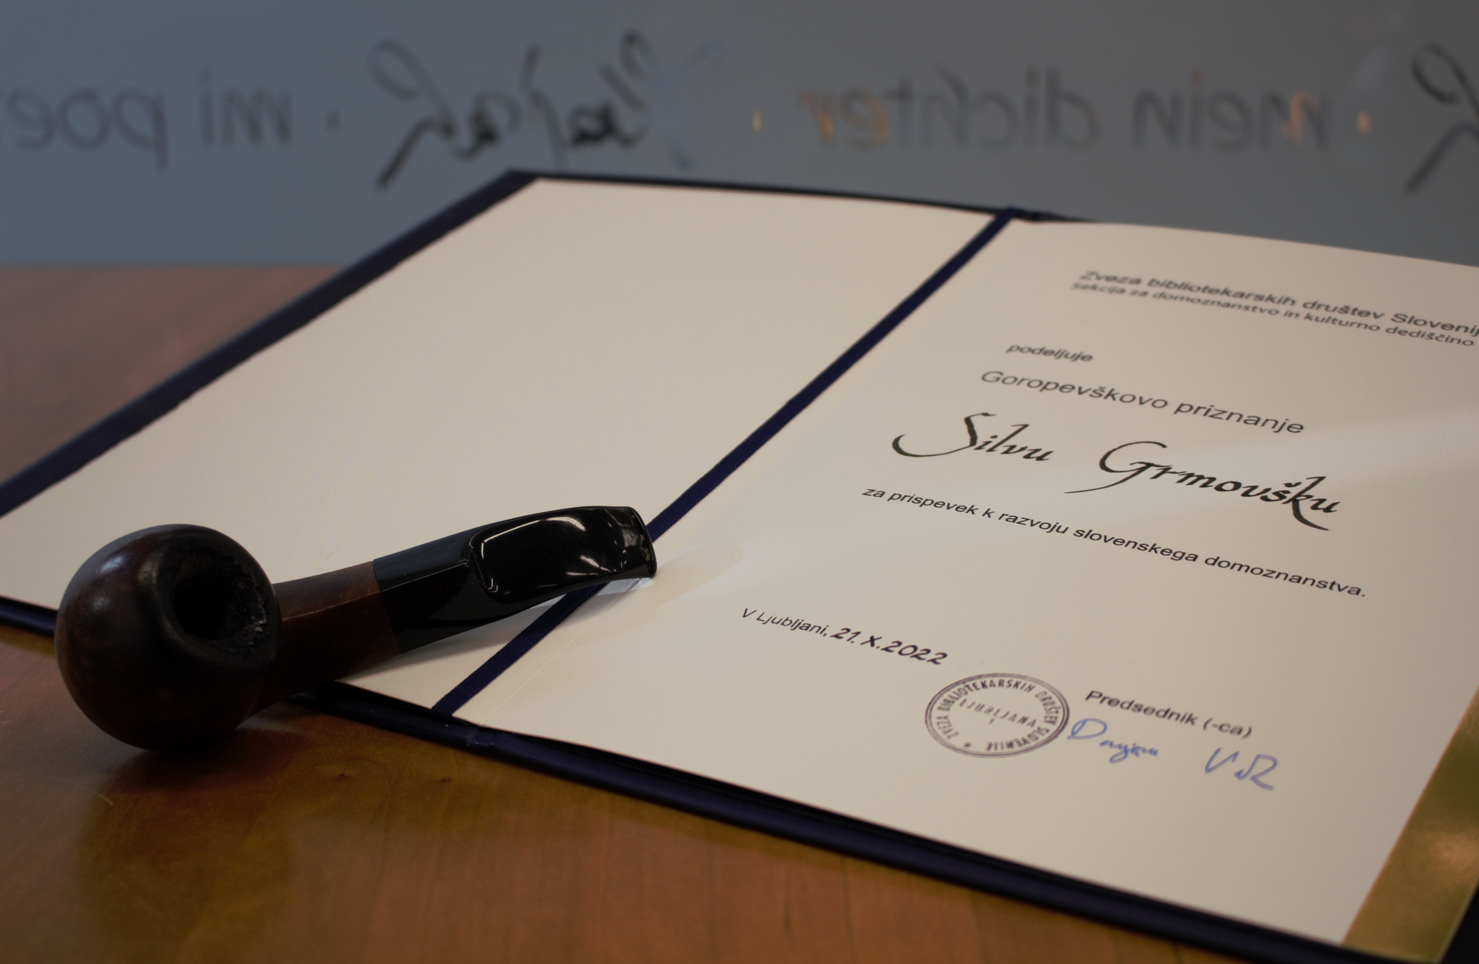 mi poe
mein dichter
Zveza bibliotekarskih društev Slovenij
Sekcija za domoznanstvo in kulturno dediščino
podeljuje
Goropevškovo priznanje
Silvu Grmovšku
za prispevek k razvoju slovenskega domoznanstva.
V Ljubljani, 21. X. 2022
ZVEZA BIBLIOTEKARSKIH DRUŠTEV SLOVENIJE
LJUBLJANA
1
Predsednik (-ca)